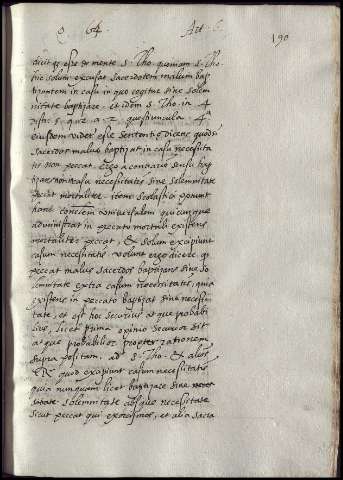 Q 64. Art 6. 190
dicit q; esse de mente S. Tho. quoniam S. Tho.
hic solum excusat sacerdotem malum bap
tizantem in casu in quo cogitur sine solem
nitate baptizare. et idem S. Tho. in 4
distı. 5. quæ. a 2. questiuncula. 4
eiusdem videt' esse sententię dicens quod si
sacerdos malus baptizat in casu necessita
tis non peccat. ergo a contrario sensu bap
tizans non in casu necessitatis sine solemnitate
peccat mortaliter. item scolastici ponunt
hanc concı̃em universalem quicunque
administrat in peccato mortali existens
mortaliter peccat, & solum excipiunt
casum necessitatis volunt ergo dicere q;
peccat malus sacerdos baptizans sine so
lemnitate extra casum necessitatis, quia
existens in peccato baptizat sine necessi
tate, et est hoc securius atque probabi
lius, licet prima opinio secura sit
atque probabilis propter rationem
supra positam. ad S. Tho. & alios
Rr. quod excipiunt casum necessitatis
quia nunquam licet baptizare sine neces
sitate solemnitate absque necessitate
sicut peccat qui exorcismos, et alia sacra